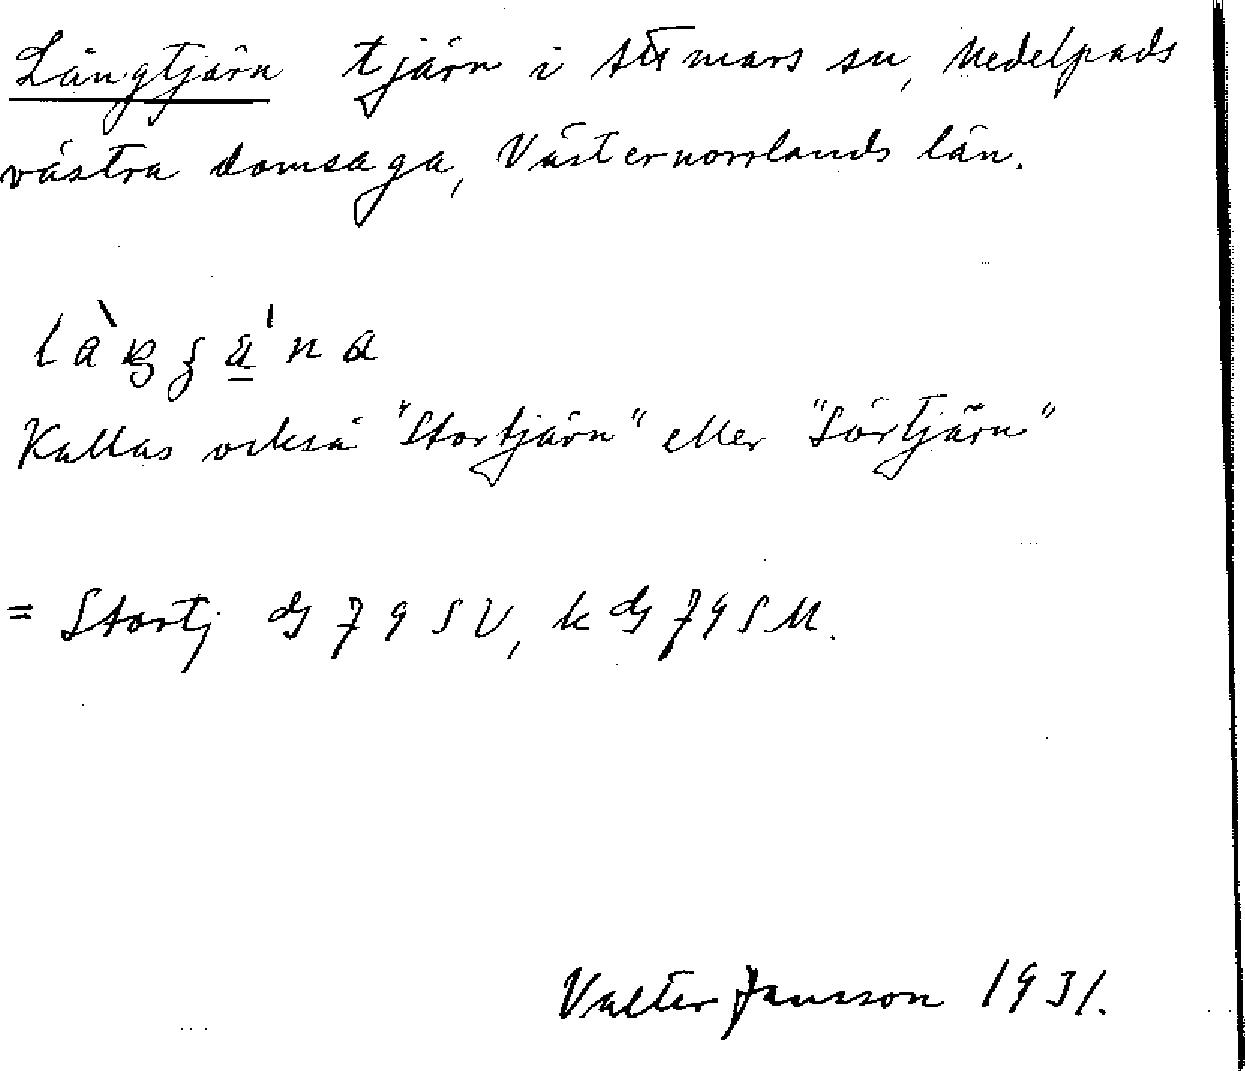 Långtjärn tjärn i Attmars sn, Medelpads
västra domsaga, Västernorrlands län.
Kallas också "Stortjärn" eller "Sörtjärn"
= Stortj dg 79 SV, k dg 79 SM.
Valter Jansson 1931.